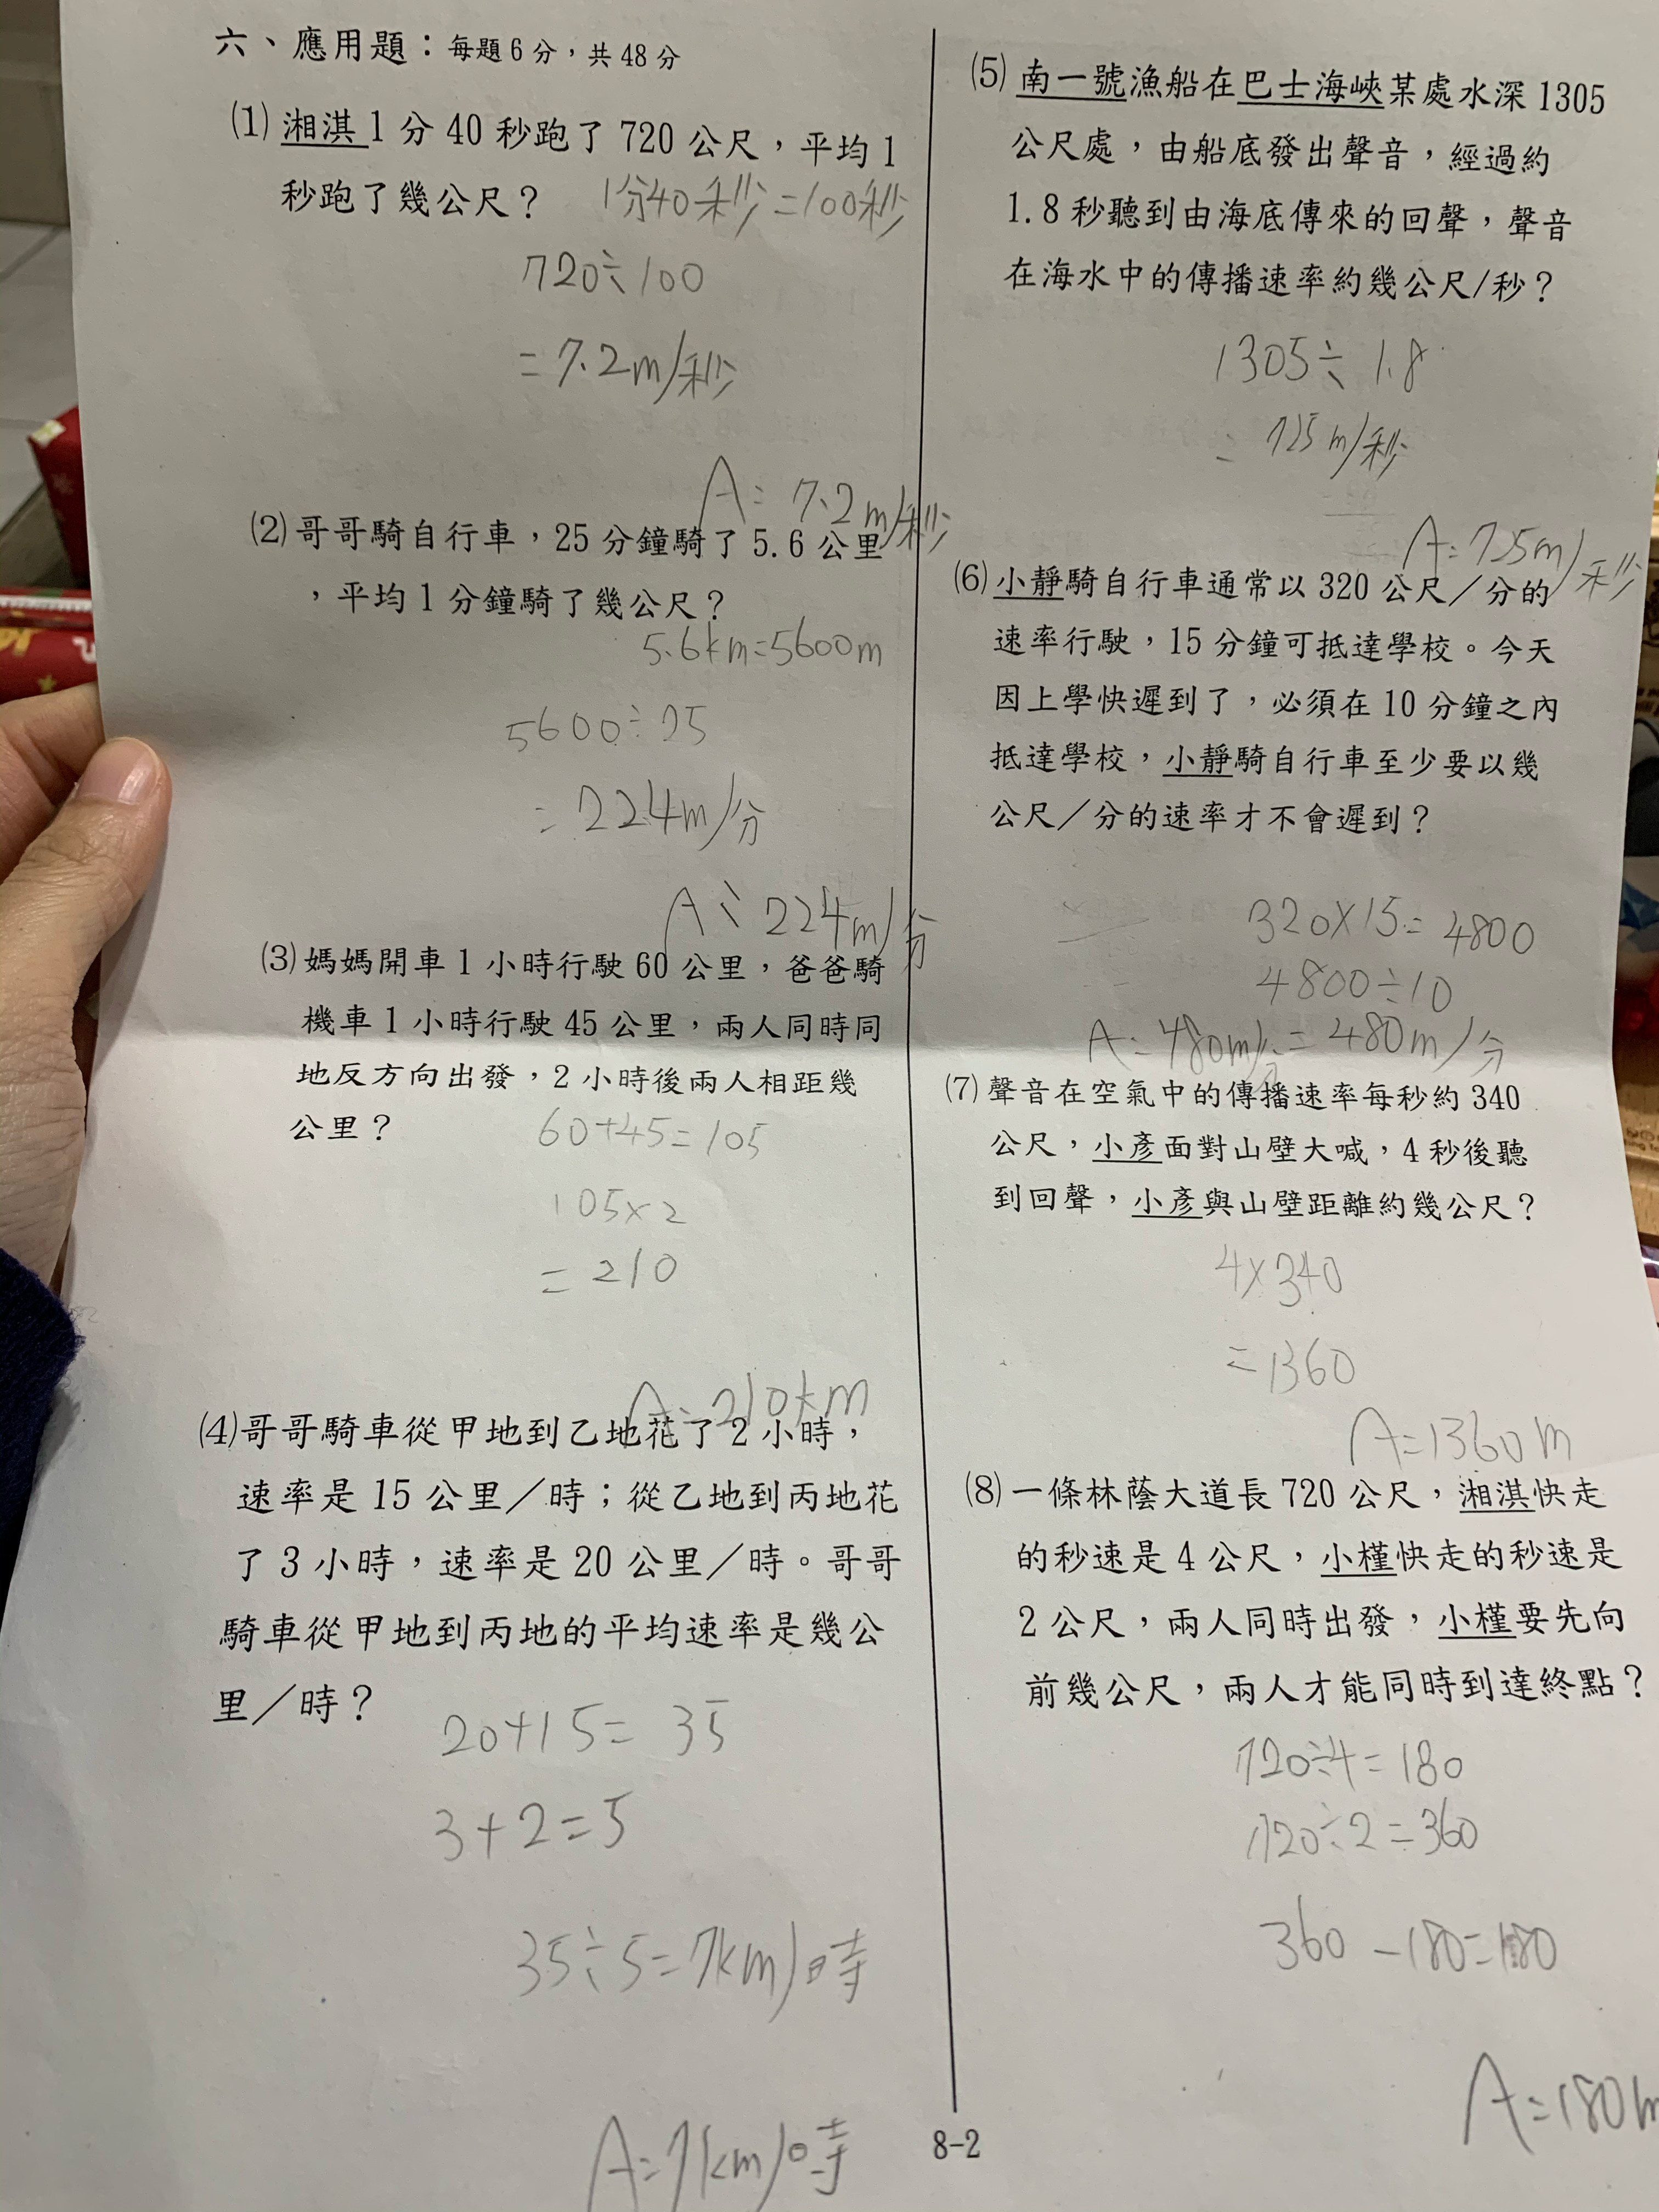 六、應用題：每題6分，共48分
⑴湘淇1分40秒跑了720公尺，平均1
秒跑了幾公尺？ 1分40秒=100秒
720÷100
=7.2m/秒
A：7.2m/秒
⑵哥哥騎自行車，25分鐘騎了5.6公里
，平均1分鐘騎了幾公尺？
5.6km=5600m
5600÷25
=224m/分
A：224m/分
⑶媽媽開車1小時行駛60公里，爸爸騎
機車1小時行駛45公里，兩人同時同
地反方向出發，2小時後兩人相距幾
公里？ 60+45=105
105×2
=210
A：210km
⑷哥哥騎車從甲地到乙地花了2小時，
速率是15公里／時；從乙地到丙地花
了3小時，速率是20公里／時。哥哥
騎車從甲地到丙地的平均速率是幾公
里／時？ 20+15=35
3+2=5
35÷5=7km/時
A=7km/時
⑸南一號漁船在巴士海峽某處水深1305
公尺處，由船底發出聲音，經過約
1.8秒聽到由海底傳來的回聲，聲音
在海水中的傳播速率約幾公尺/秒？
1305÷1.8
=725m/秒
A=725m/秒
⑹小靜騎自行車通常以320公尺／分的
速率行駛，15分鐘可抵達學校。今天
因上學快遲到了，必須在10分鐘之內
抵達學校，小靜騎自行車至少要以幾
公尺／分的速率才不會遲到？
320×15=4800
4800÷10
=480m/分
A=480m/分
⑺聲音在空氣中的傳播速率每秒約340
公尺，小彥面對山壁大喊，4秒後聽
到回聲，小彥與山壁距離約幾公尺？
4×340
=1360
A=1360m
⑻一條林蔭大道長720公尺，湘淇快走
的秒速是4公尺，小槿快走的秒速是
2公尺，兩人同時出發，小槿要先向
前幾公尺，兩人才能同時到達終點？
720÷4=180
720÷2=360
360-180=180
A=180m
8-2